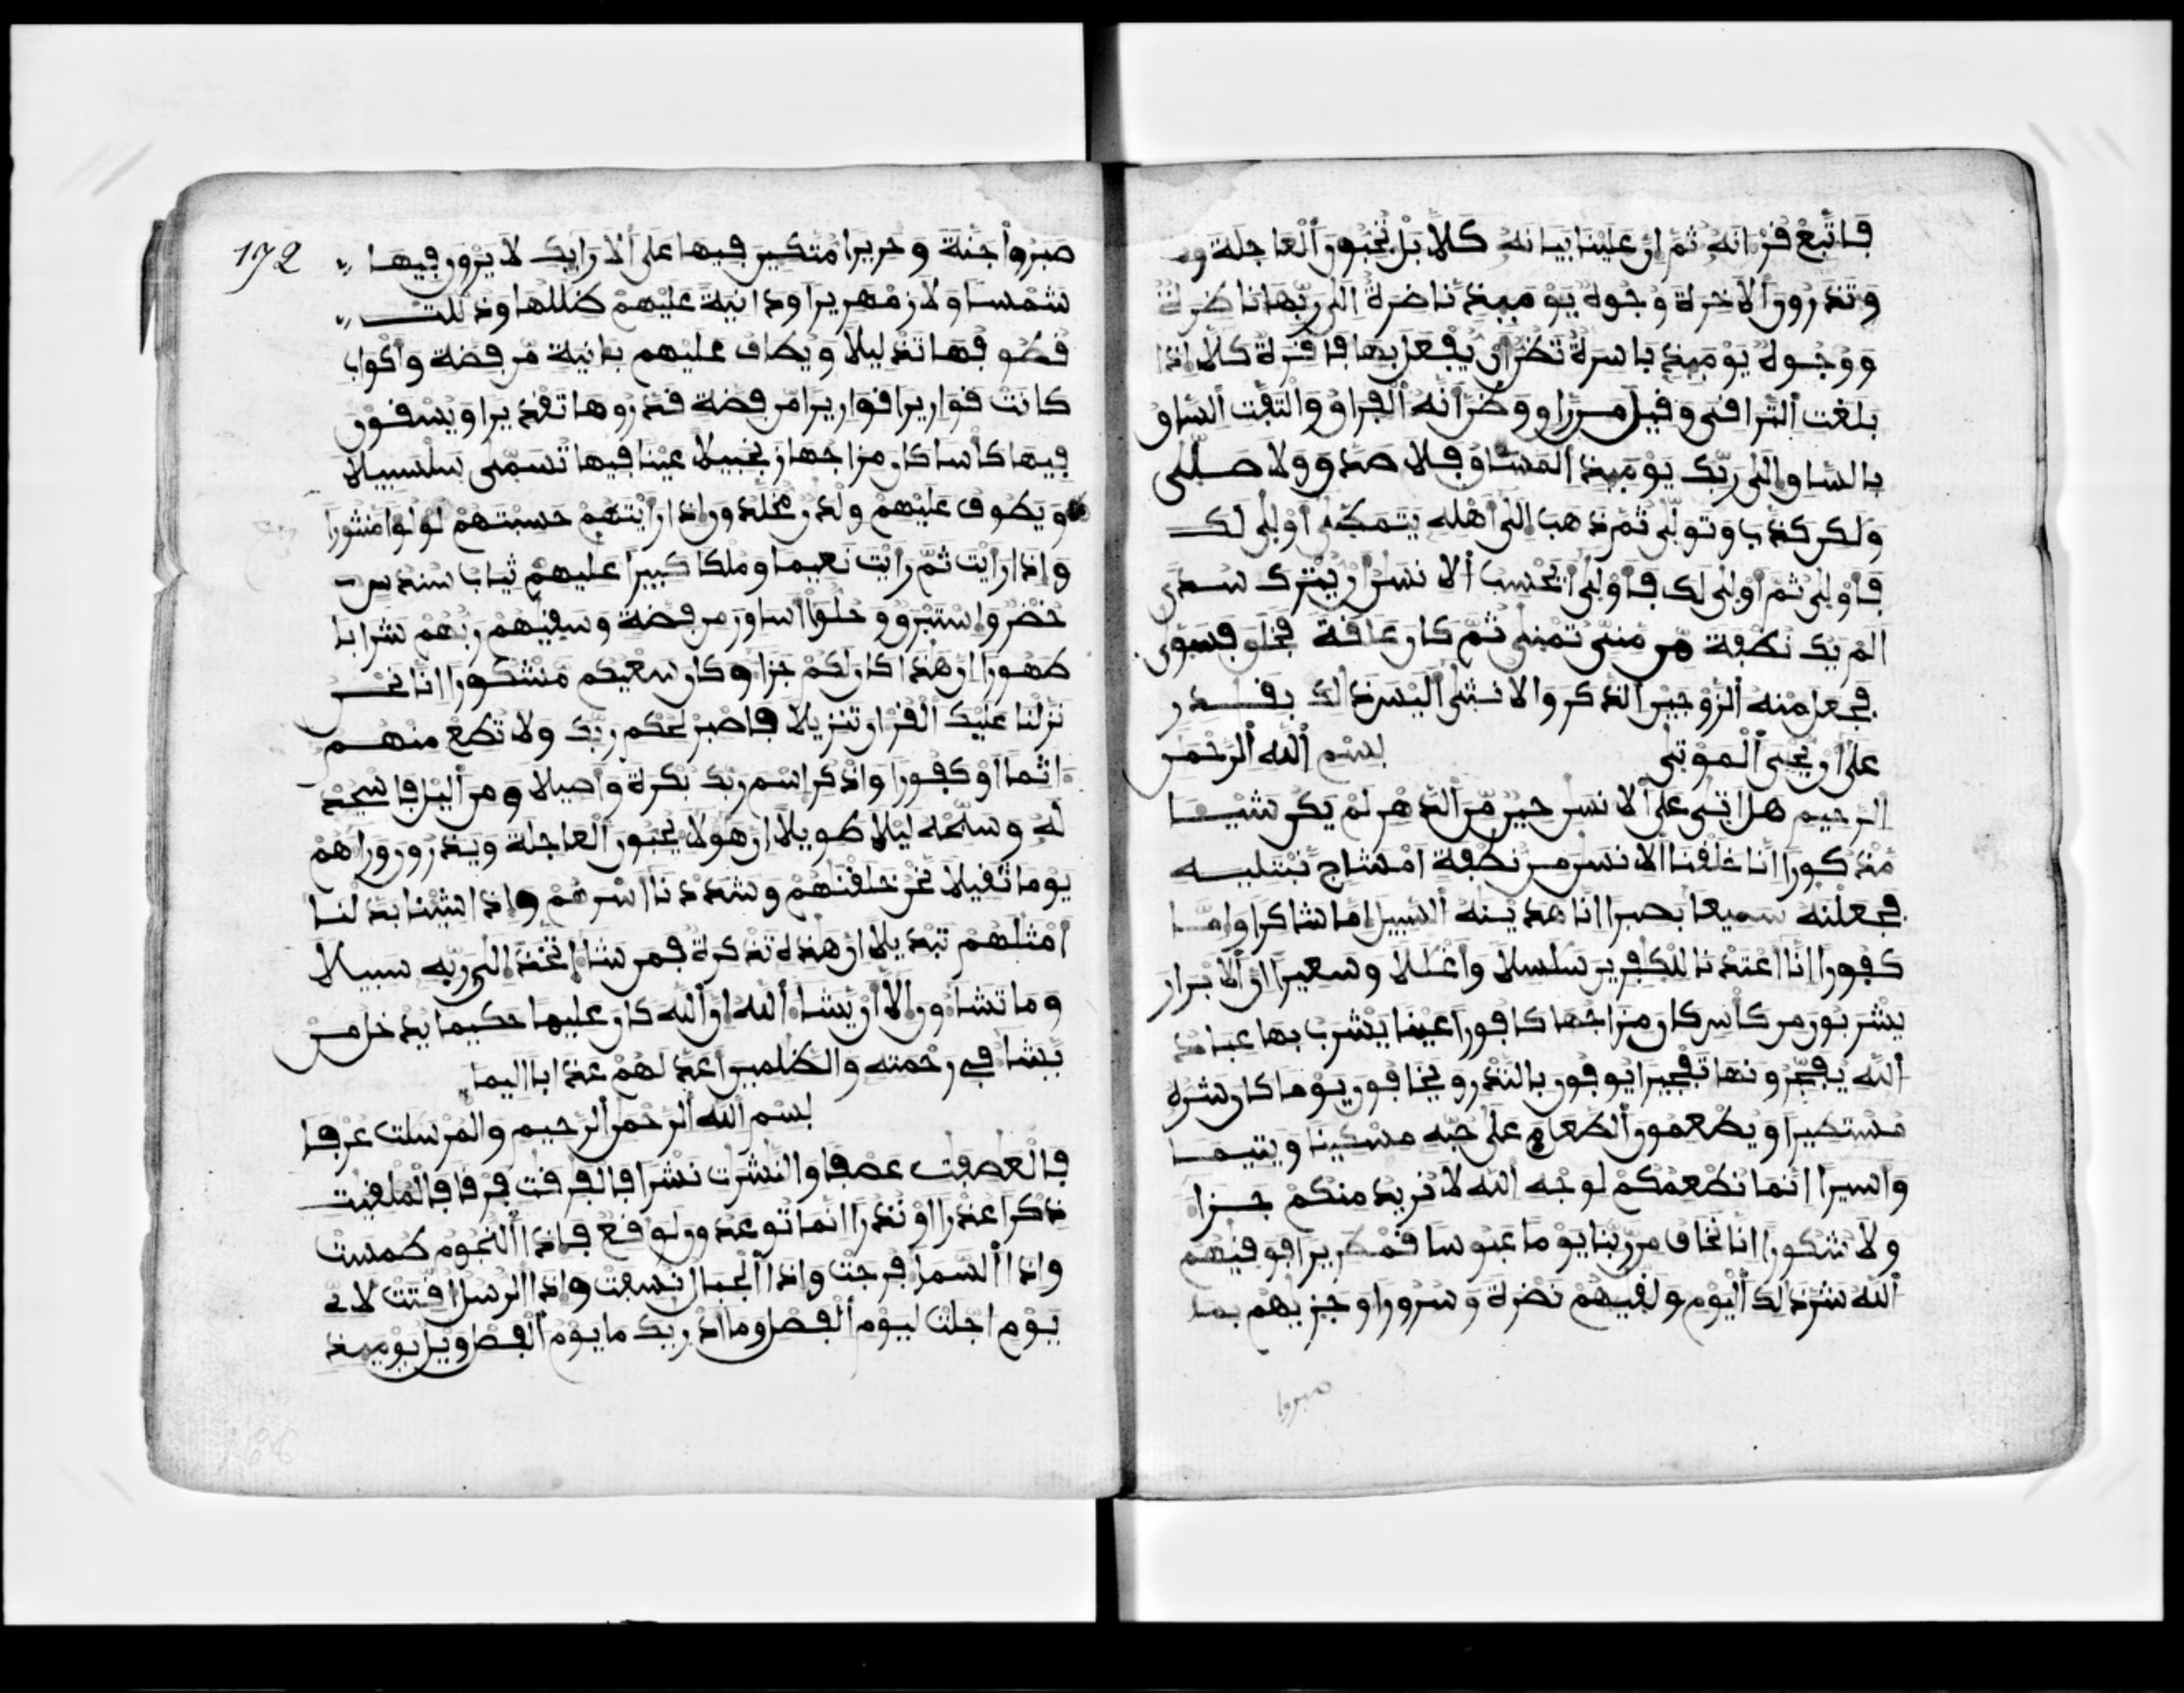 فاتبع قرانه ثم ان علينا بيانه كلا بل تحبون العاجلة و
وتذرون الاخرة وجوه يومئذ ناضرة الى ربها ناظرة
ووجوه يومئذ باسرة تظن ان يفعل بها فاقرة كلا اذا
بلغت التراقي وقيل من راق وظن انه الفراق والتفت الساق
بالساق الى ربك يومئذ المساق فلا صدق ولا صلى
ولكن كذب وتولى ثم ذهب الى اهله يتمطى اولى لك
فاولى ثم اولى لك فاولى ايحسب الانسن ان يترك سدى
الم يك نطفة من مني تمنى ثم كان علقة فخلق فسوى
فجعل منه الزوجين الذكر والانثى اليس ذلك بقدر
على ان يحيي الموتى بسم الله الرحمن
الرحيم هل اتى على الانسن حين من الدهر لم يكن شيا
مذكورا انا خلقنا الانسن من نطفة امشاج نبتليه
فجعلنه سميعا بصيرا انا هدينه السبيل اما شاكرا واما
كفورا انا اعتدنا للكفرين سلسلا واغللا وسعيرا ان الابرار
يشربون من كاس كان مزاجها كافورا عينا يشرب بها عباد
الله يفجرونها تفجيرا يوفون بالنذر ويخافون يوما كان شره
مستطيرا ويطعمون الطعام على حبه مسكينا ويتيما
واسيرا انما نطعمكم لوجه الله لا نريد منكم جزا
ولا شكورا انا نخاف من ربنا يوما عبوسا قمطريرا فوقيهم
الله شر ذلك اليوم ولقيهم نضرة وسرورا وجزيهم بما
صبروا
172
صبروا جنة وحريرا متكين فيها على الارايك لا يرون فيها
شمسا ولا زمهريرا ودانية عليهم ظللها وذللت
قطوفها تذليلا ويطاف عليهم بانية من فضة واكواب
كانت قواريرا قواريرا من فضة قدروها تقديرا ويسقون
فيها كأسا كان مزاجها زنجبيلا عينا فيها تسمى سلسبيلا
ويطوف عليهم ولدن مخلدون اذا رايتهم حسبتهم لولوا منثورا
واذا رايت ثم رايت نعيما وملكا كبيرا عليهم ثياب سندس
خضر واستبرق وحلوا اساور من فضة وسقيهم ربهم شرابا
طهورا ان هذا كان لكم جزا وكان سعيكم مشكورا انا نحن
نزلنا عليك القران تنزيلا فاصبر لحكم ربك ولا تطع منهم
اثما او كفورا واذكر اسم ربك بكرة واصيلا ومن اليل فاسجد
له وسبحه ليلا طويلا ان هولا يحبون العاجلة ويذرون وراهم
يوما ثقيلا نحن خلقنهم وشددنا اسرهم واذا شينا بدلنا
امثلهم تبديلا ان هذه تذكرة فمن شا اتخذ الى ربه سبيلا
وما تشاون الا ان يشا الله ان الله كان عليما حكيما يدخل من
يشا في رحمته والظلمين اعد لهم عذابا اليما
بسم الله الرحمن الرحيم والمرسلت عرفا
فالعصفت عصفا والنشرت نشرا فالفرقت فرقا فالملقيت
ذكرا عذرا او نذرا انما توعدون لوقع فاذا النجوم طمست
واذا السما فرجت واذا الجبال نسفت واذا الرسل اقتت لاي
يوم اجلت ليوم الفصل وما ادريك ما يوم الفصل ويل يومئذ